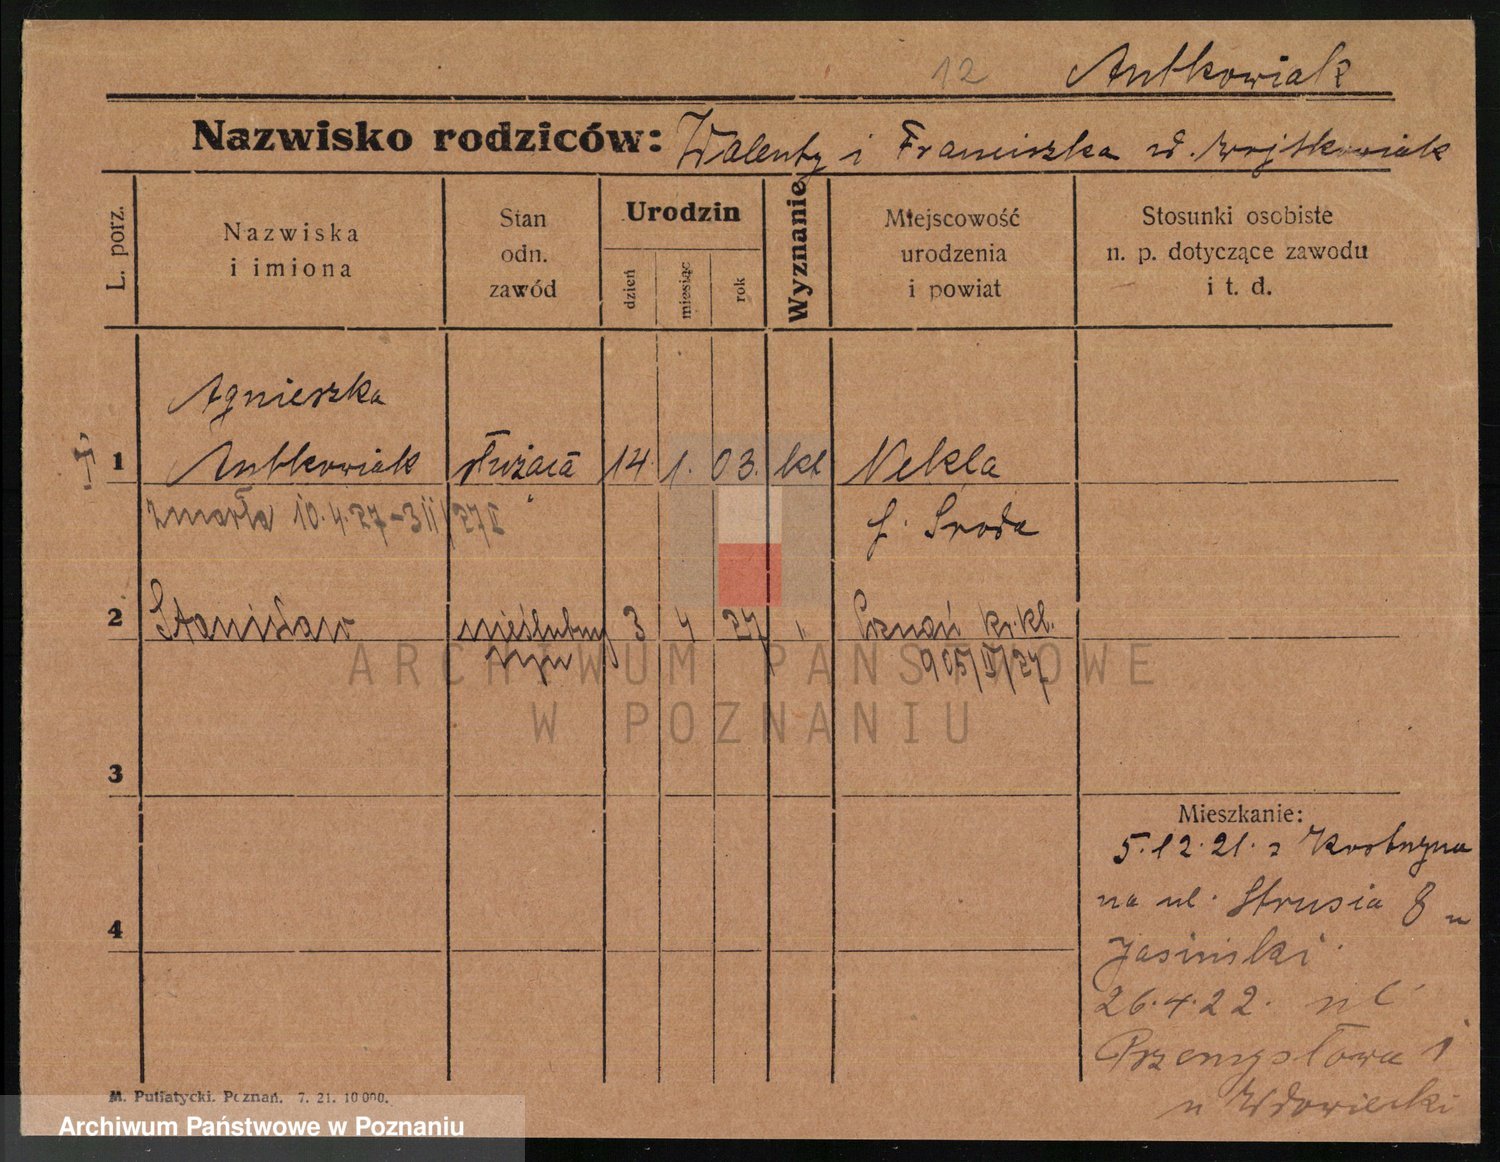 12 Antkowiak
Nazwisko rodziców: Walenty i Franciszka d. Wojtkowiak
L. porz.
Nazwiska
i imiona
Stan
odn.
zawód
Urodzin
dzień
miesiąc
rok
Wyznanie
Miejscowość
urodzenia
i powiat
Stosunki osobiste
n. p. dotyczące zawodu
i t. d.
Agnieszka
1 Antkowiak służąca 14. 1. 03. kt Nekla
zmarła 10.4.27 – 311/27 I
p. Środa
2 Stanisław nieślubny 3 4 27 Poznań kr. kl.
syn
905/II/27
3
4
Mieszkanie:
5.12.21. z
na ul. Strusia 8 u
Jasiński
26.4.22. ul
Przemysłowa 1
u Wdowiecki
M. Putiatycki. Poznań. 7. 21. 10 000.
ARCHIWUM PAŃSTWOWE
W POZNANIU
Archiwum Państwowe w Poznaniu